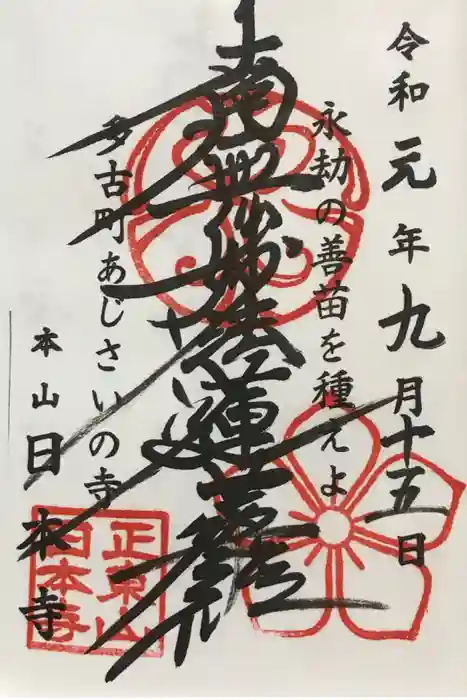 令和元年九月十五日
永劫の善苗を種えよ
南無妙法蓮華経
多古町あじさいの寺
本山日本寺
正東山
日本寺